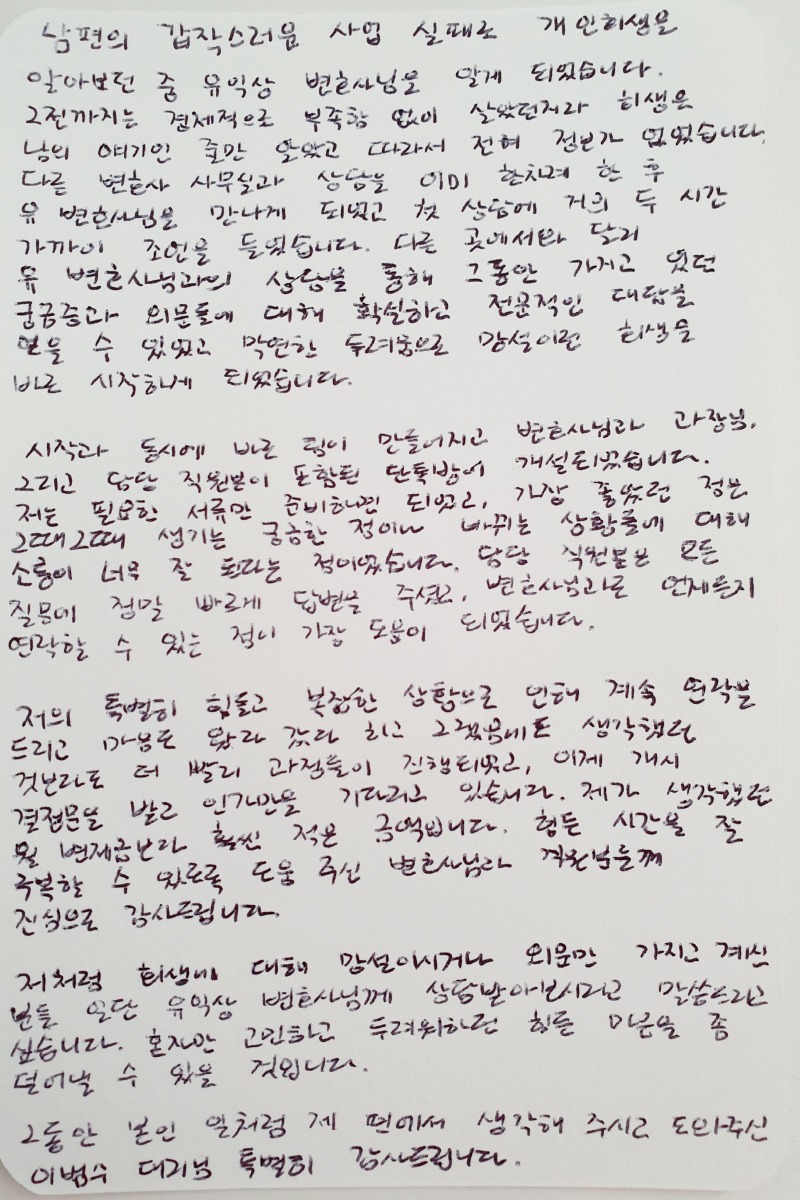 남편의 갑작스러움 사업 실패로 개인회생을
알아보던 중 유익상 변호사님을 알게 되었습니다.
그전까지는 경제적으로 부족함 없이 살았던지라 회생은
남의 얘기인 줄만 알았고 따라서 전혀 정보가 없었습니다.
다른 변호사 사무실과 상담을 이미 한차례 한 후
유 변호사님을 만나게 되었고 첫 상담에 거의 두 시간
가까이 조언을 들었습니다. 다른 곳에서와 달리
유 변호사님과의 상담을 통해 그동안 가지고 있던
궁금증과 의문들에 대해 확실하고 전문적인 대답을
얻을 수 있었고 막연한 두려움으로 망설이던 회생을
바로 시작하게 되었습니다.
시작과 동시에 바로 팀이 만들어지고 변호사님과 과장님,
그리고 담당 직원분이 포함된 단톡방이 개설되었습니다.
저는 필요한 서류만 준비하면 되었고, 가장 좋았던 점은
그때그때 생기는 궁금한 점이나 바뀌는 상황들에 대해
소통이 너무 잘 된다는 점이었습니다. 담당 직원분은 모든
질문에 정말 빠르게 답변을 주셨고, 변호사님과도 언제든지
연락할 수 있는 점이 가장 도움이 되었습니다.
저의 특별히 힘들고 복잡한 상황으로 인해 계속 연락을
드리고 마음도 왔다 갔다 하고 그랬음에도 생각했던
것보다도 더 빨리 과정들이 진행되었고, 이제 개시
결정문을 받고 인가만을 기다리고 있습니다. 제가 생각했던
월 변제금보다 훨씬 적은 금액입니다. 힘든 시간을 잘
극복할 수 있도록 도움 주신 변호사님과 직원분들께
진심으로 감사드립니다.
저처럼 회생에 대해 망설이시거나 의문만 가지고 계신
분들 일단 유익상 변호사님께 상담받아보시라고 말씀드리고
싶습니다. 혼자만 고민하고 두려워하던 힘든 마음을 좀
덜어낼 수 있을 것입니다.
그동안 본인 일처럼 제 편에서 생각해 주시고 도와주신
이범수 대리님 특별히 감사드립니다.